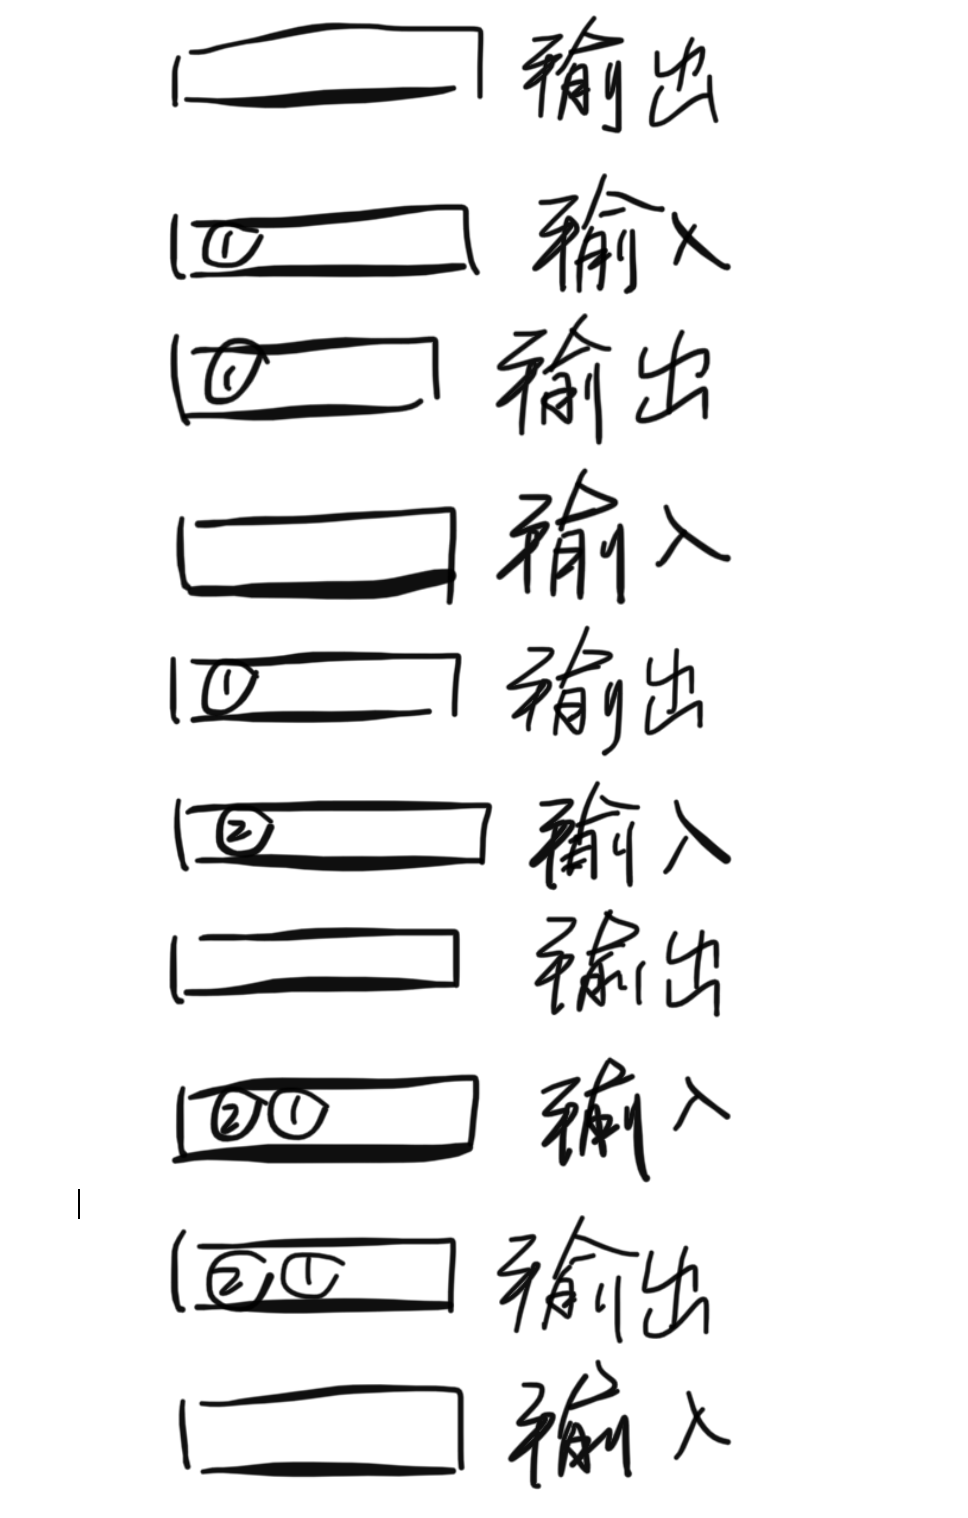 输出
① 输入
① 输出
输入
① 输出
② 输入
输出
② ① 输入
② ① 输出
输入